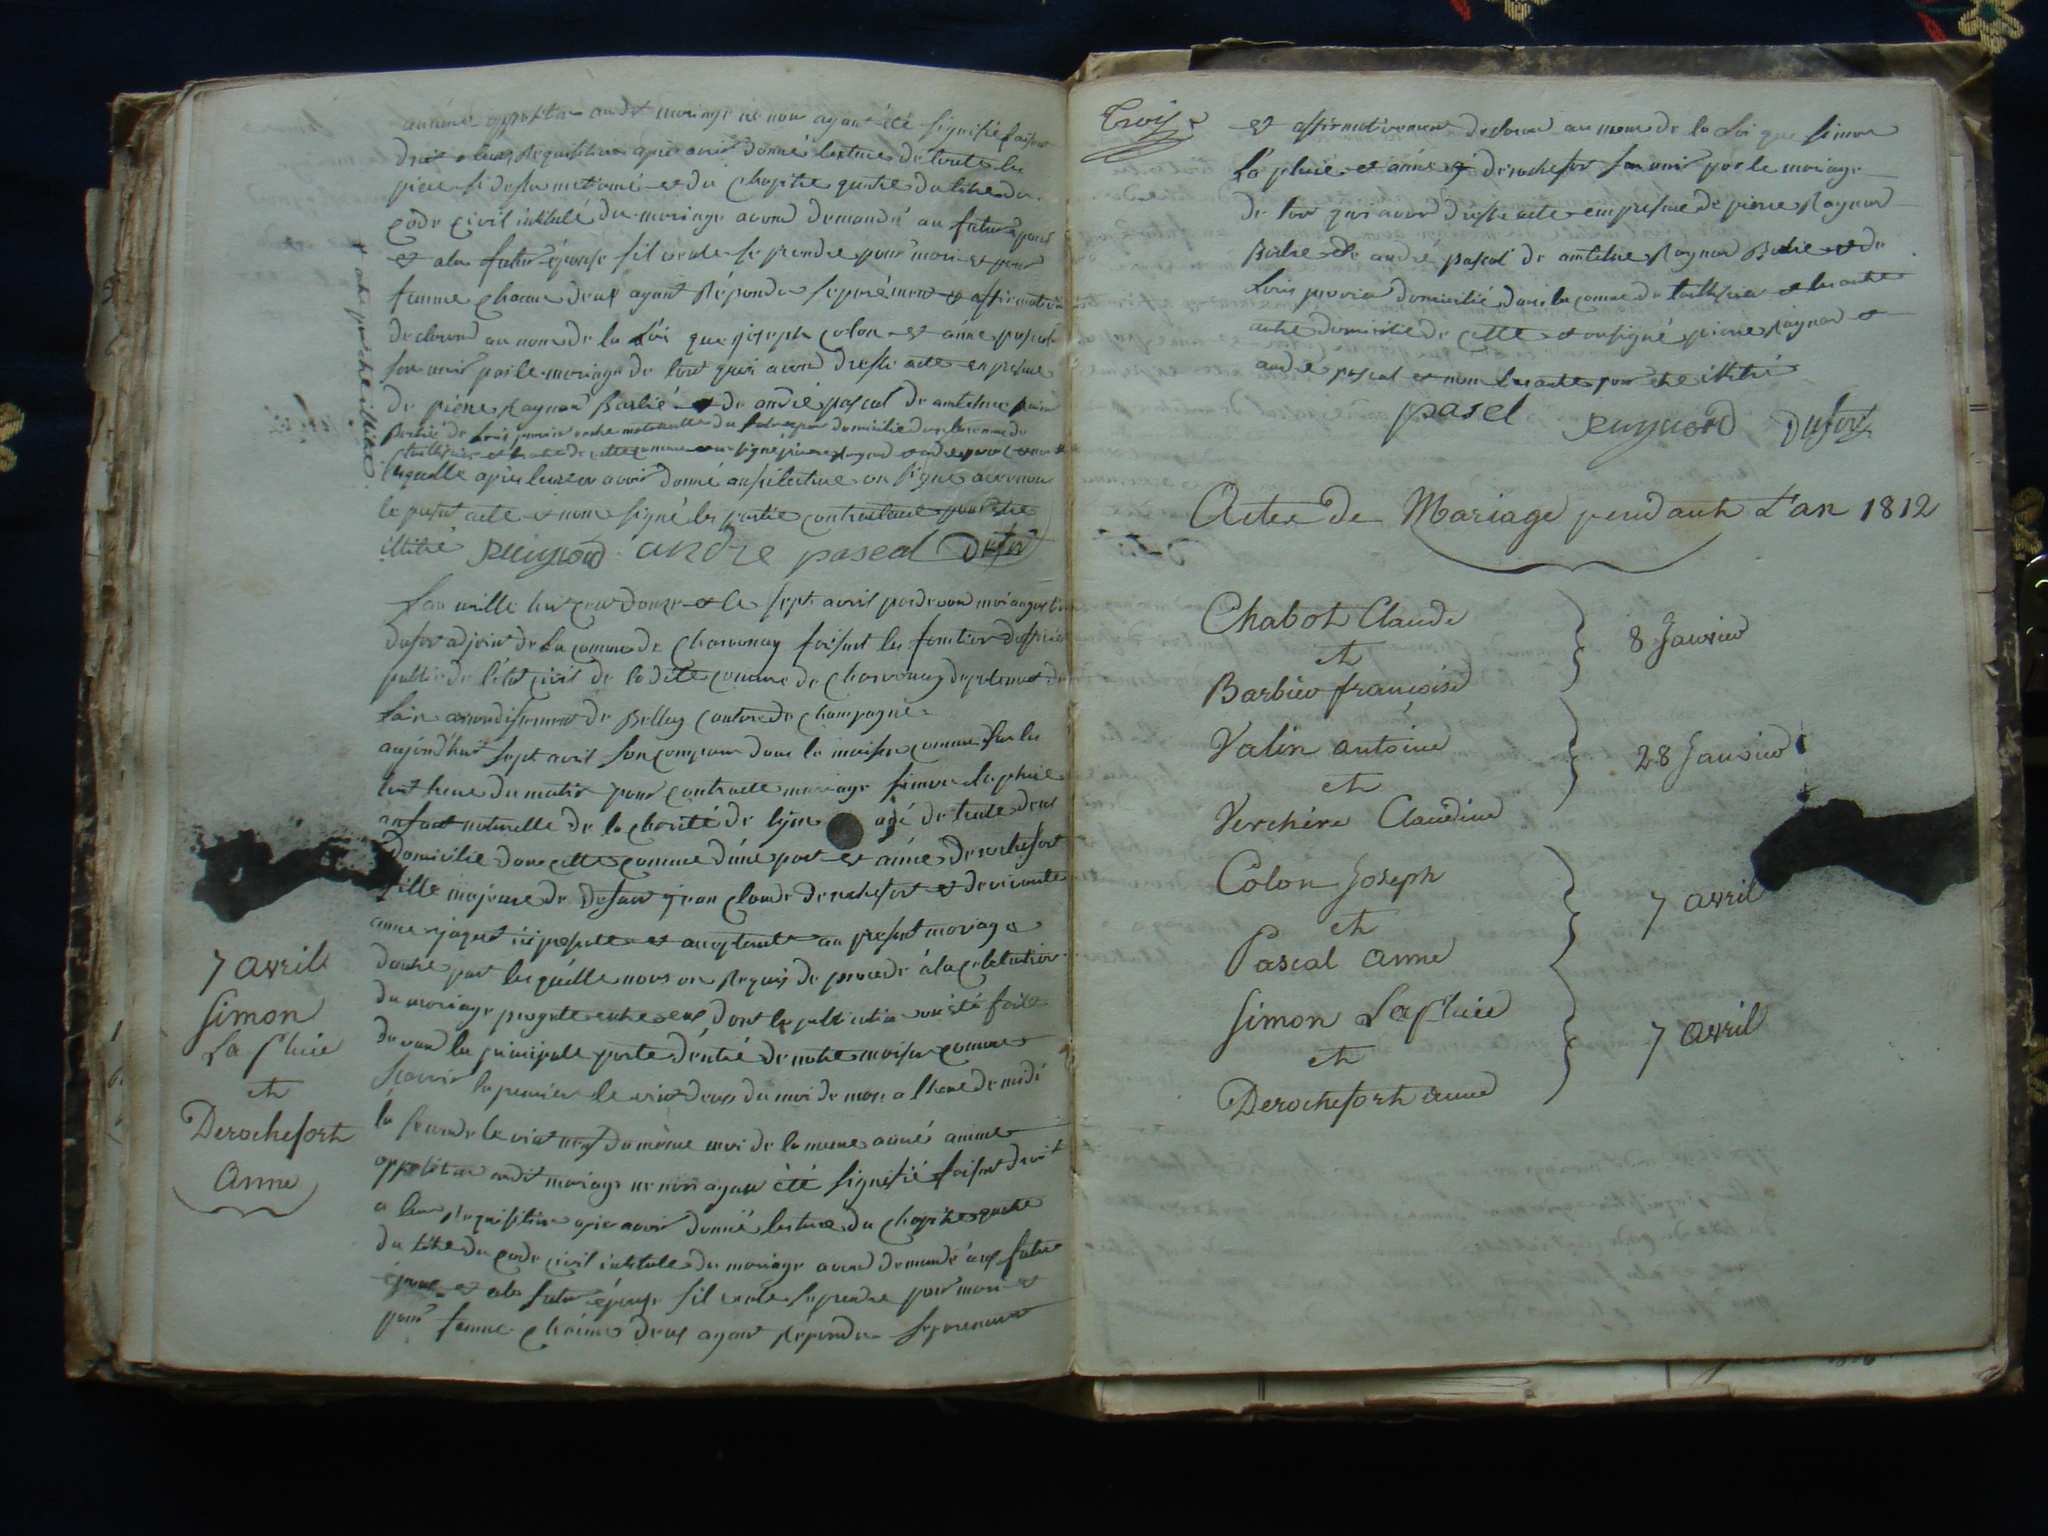 aucune opposition audit mariage ne nous ayant été signifié faisant
droit a leur Requisition apres avoir donné lecture de toute les
piece si desus mentioné et du chapitre quatre du titre du
code Civil intitulé du mariage avond demandé au futur epoux
et ala future épouse sil veule se prendre pour mari et pour
femme chacun deux ayant Répondu séparément et affirmativemen
declarond au nom de la Loi que joseph colon et anne pascal
son unis par le mariage de tout quoi avond dressé acte en présence
de pierre Raynaud de andré pascal de antelme
Louis domicilié dans la comune de
laquelle apres leur en avoir donné ausi lecture on signé avec nous
le présent acte et nom signé les partie contractante pour être
illitéré Reynaud andre pascal Dufour
x pour être illitéré
Lan mille huit cent douze et le sept avril pardevand moi
dufour adjoint de la comune de Charvonay faisant les fonction dofficier
public de létat civil de ladite comune de Charvonay departement de
Lain arondissement de Belley canton de Champagne
aujourdhui sept avril son comparu dans la maison comune sur les
huit heure du matin pour contracte mariage simon la pluie
anfant naturelle de la charité de lyon agé de trente deux
Domicilié dans cette comune dune part et anne derochefort
fille majeure de defunt jean claude derochefort et de vivante
anne jaquet ici presente et acceptante au présent mariage
dautre part lesquelle nous on Requis de procedé à la celebration
du mariage projeté entre eux dont les publication ont été faite
devand la principale porte déntré de notre maison comune
Scavoir la premier le vint deux du moi de mars a lheure de midi
la seconde le vint neuf du même moi de la meme année aucune
opposition audit mariage ne nous ayant été signifié faisant droit
a leur Requisition apres avoir donné lecture du chapitre quatre
du titre du code civil intitulé du mariage avond demandé aux futur
époux et ala future épouse sil veule se prendre pour mari et
pour femme chacun deux ayant Répondu séparement
7 avril
Simon
La Pluie
et
Derochefort
Anne
Trois
et affirmativement declarond au nom de la Loi que simon
La pluie et anne derochefort son unis par le mariage
de tout quoi avond dressé acte en presence de pierre Raynaud
de andré pascal de antelme Raynaud et de
Louis domicilié dans la comune de et les autre
autre domicilié de cette et on signé pierre Raynaud et
andré pascal et non les autre pour etre illitéré
pasel Reynaud Dufour
Actes de Mariage pendant L'an 1812
Chabot Claude
et
Barbier françoise
8 Janvier
Valin antoine
et
Verchère Claudine
28 Janvier
Colon Joseph
et
Pascal Anne
7 avril
Simon La Pluie
et
Derochefort anne
7 avril